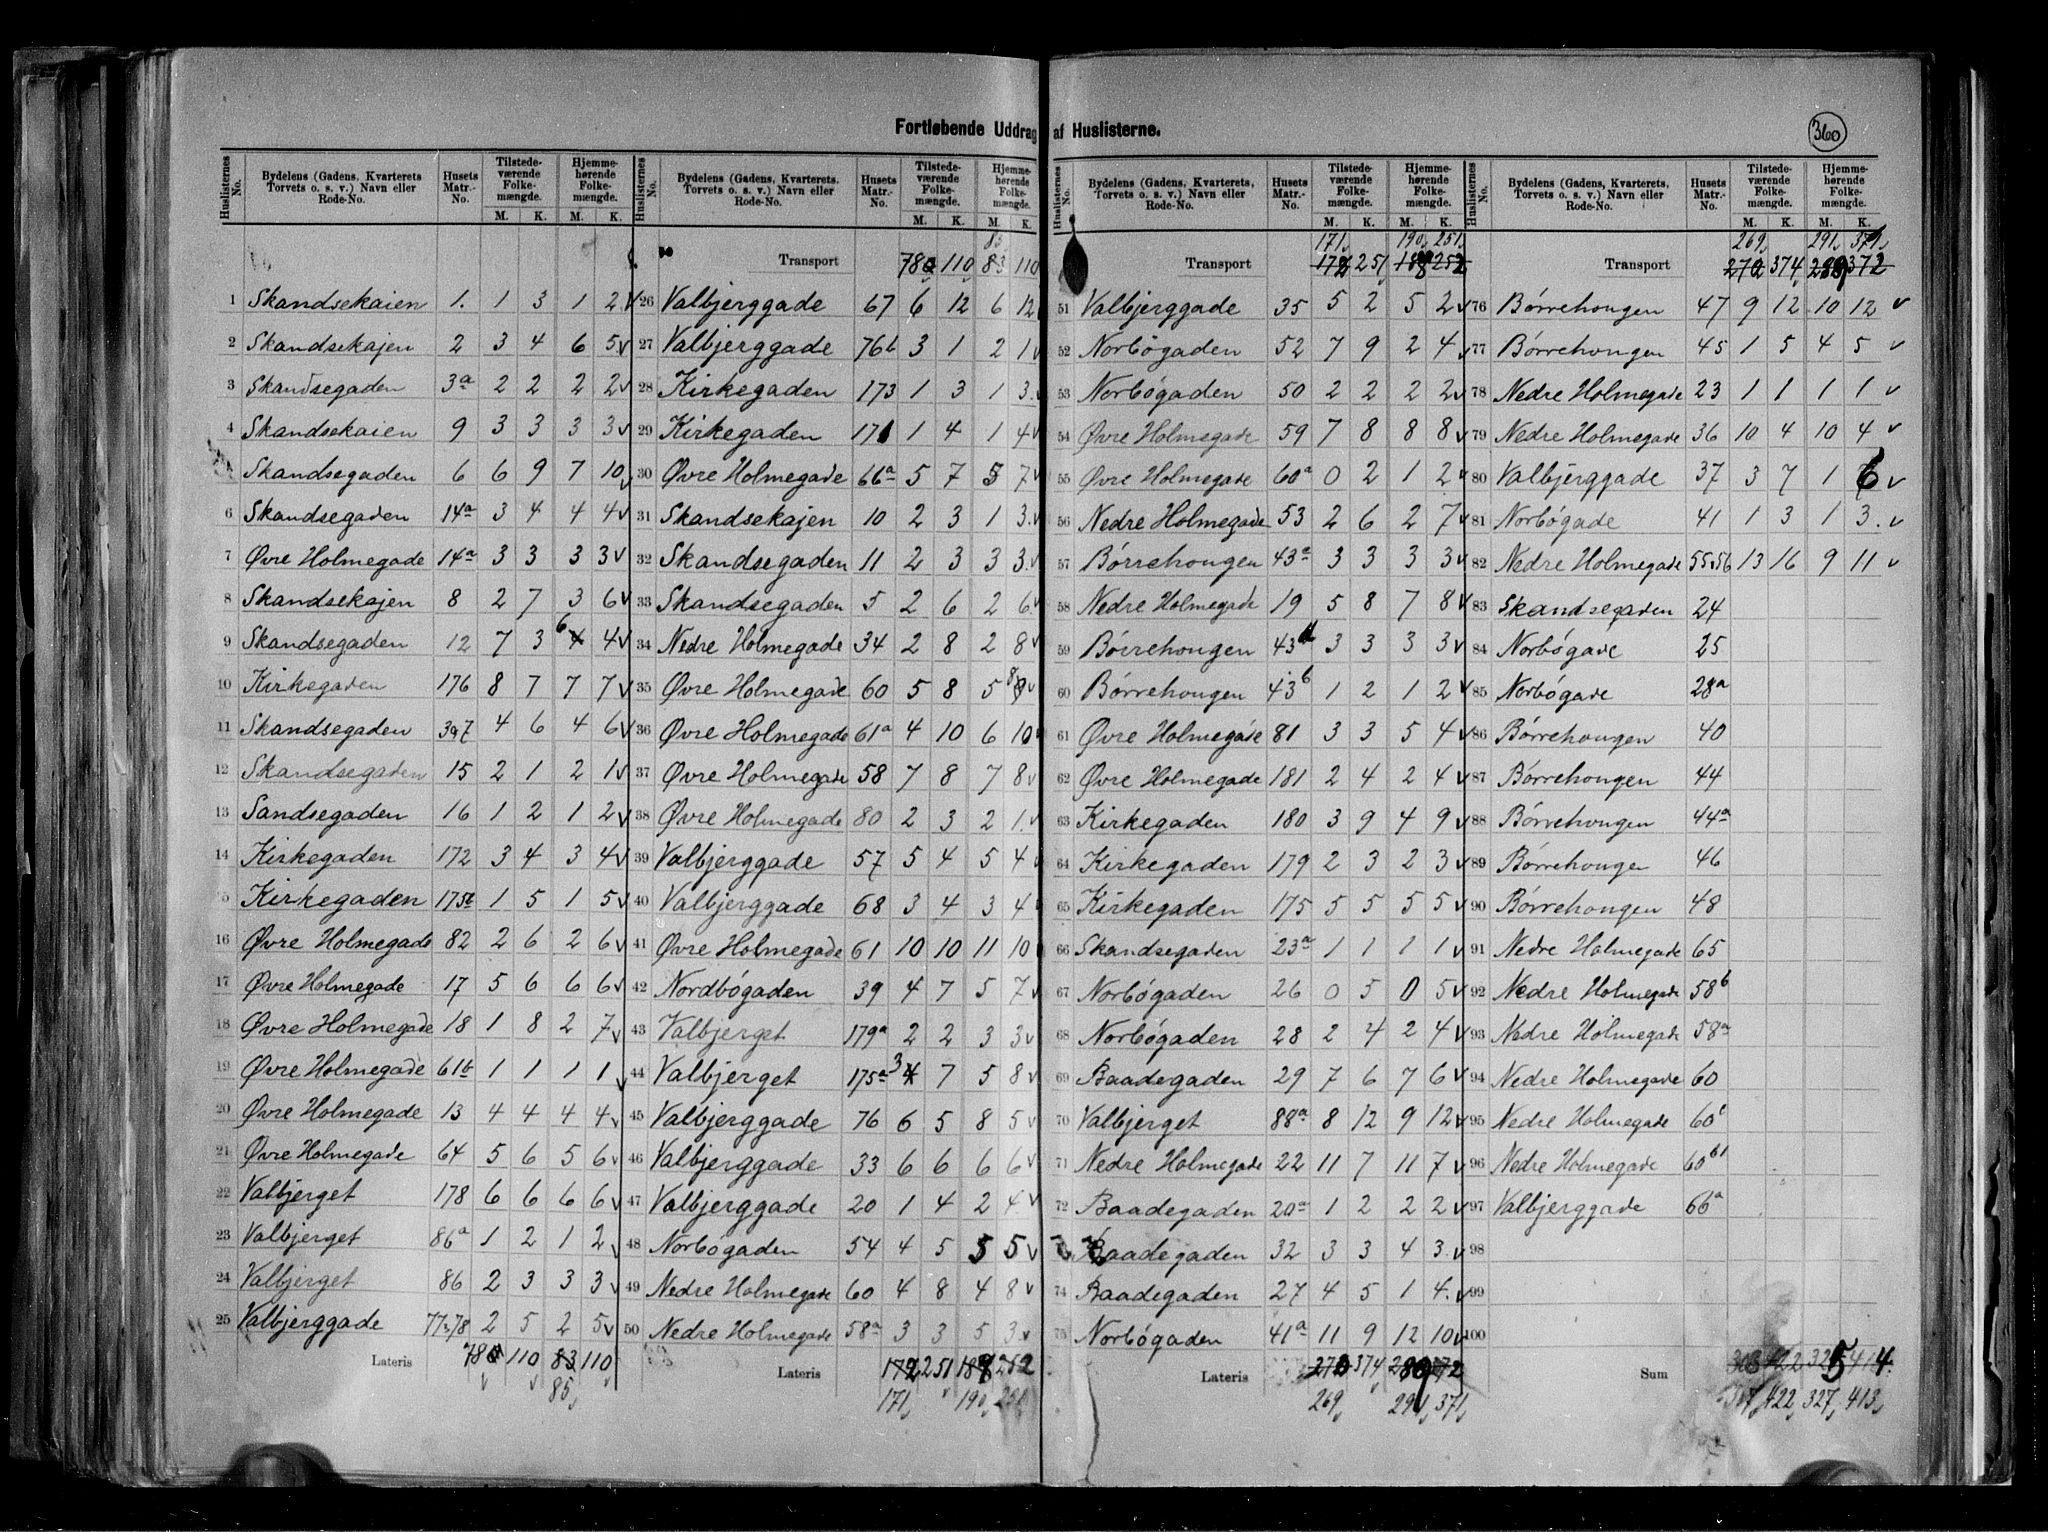 Fortløbende Uddrag af Huslisterne.
360
Huslisternes No. | Bydelens (Gadens, Kvarterets, Torvets o. s. v.) Navn eller Rode-No. | Husets Matr.-No. | Tilstedeværende Folkemængde. M. K. | Hjemmehørende Folkemængde. M. K.
1 Skandsekaien 1. 1 3 1 2 v
2 Skandsekajen 2 3 4 6 5 v
3 Skandsegaden 3a 2 2 2 2 v
4 Skandsekaien 9 3 3 3 3 v
Skandsegaden 6 6 9 7 10 v
6 Skandsegaden 14a 3 4 4 4 v
7 Øvre Holmegade 14a 3 3 3 3 v
8 Skandsekajen 8 2 7 3 6 v
9 Skandsegaden 12 7 3 6 4 4 v
10 Kirkegaden 176 8 7 7 7 v
11 Skandsegaden 397 4 6 4 6 v
12 Skandsegaden 15 2 1 2 1 v
13 Sandsegaden 16 1 2 1 2 v
14 Kirkegaden 172 3 4 3 4 v
5 Kirkegaden 175b 1 5 1 5 v
16 Øvre Holmegade 82 2 6 2 6 v
17 Øvre Holmegade 17 5 6 6 6 v
18 Øvre Holmegade 18 1 8 2 7 v
19 Øvre Holmegade 61b 1 1 1 1 v
20 Øvre Holmegade 13 4 4 4 4 v
21 Øvre Holmegade 64 5 6 5 6 v
22 Valbjerget 178 6 6 6 6 v
23 Valbjerget 86a 1 2 1 2 v
24 Valbjerget 86 2 3 3 3 v
25 Valbjerggade 77.78 2 5 2 5 v
Lateris 78 110 83 110
85
Huslisternes No. | Bydelens (Gadens, Kvarterets, Torvets o. s. v.) Navn eller Rode-No. | Husets Matr.-No. | Tilstedeværende Folkemængde. M. K. | Hjemmehørende Folkemængde. M. K.
85
Transport 78 110 83 110
26 Valbjerggade 67 6 12 6 12
27 Valbjerggade 76b 3 1 2 1 v
28 Kirkegaden 173 1 3 1 3. v
29 Kirkegaden 171 1 4 1 4 v
30 Øvre Holmegade 66a 5 7 5 7 v
31 Skandsekajen 10 2 3 1 3. v
32 Skandsegaden 11 2 3 3 3. v
33 Skandsegaden 5 2 6 2 6. v
34 Nedre Holmegade 34 2 8 2 8 v
35 Øvre Holmegade 60 5 8 5 8 v
36 Øvre Holmegade 61a 4 10 6 10 v
37 Øvre Holmegade 58 7 8 7 8 v
38 Øvre Holmegade 80 2 3 2 1. v
39 Valbjerggade 57 5 4 5 4 v
40 Valbjerggade 68 3 4 3 4 v
41 Øvre Holmegade 61 10 10 11 10
42 Nordbøgaden 39 4 7 5 7 v
43 Valbjerget 179a 2 2 3 3 v
44 Valbjerget 175a 3 4 7 5 8 v
45 Valbjerggade 76 6 5 8 5 v
46 Valbjerggade 33 6 6 6 6 v
47 Valbjerggade 20 1 4 2 4 v
48 Norbøgaden 54 4 5 5 5 v
49 Nedre Holmegade 60 4 8 4 8 v
50 Nedre Holmegade 58a 3 3 5 3 v
Lateris 172 251 188 252
171 190 251
Huslisternes No. | Bydelens (Gadens, Kvarterets, Torvets o. s. v.) Navn eller Rode-No. | Husets Matr.-No. | Tilstedeværende Folkemængde. M. K. | Hjemmehørende Folkemængde. M. K.
171 190 251
Transport 172 251 188 252
51 Valbjerggade 35 5 2 5 2 v
52 Norbøgaden 52 7 9 2 4 v
53 Norbøgaden 50 2 2 2 2 v
54 Øvre Holmegade 59 7 8 8 8 v
55 Øvre Holmegade 60a 0 2 1 2 v
56 Nedre Holmegade 53 2 6 2 7 v
57 Børrehougen 43a 3 3 3 3 v
58 Nedre Holmegade 19 5 8 7 8 v
59 Børrehougen 43d 3 3 3 3 v
60 Børrehougen 43b 1 2 1 2 v
61 Øvre Holmegade 81 3 3 5 4 v
62 Øvre Holmegade 181 2 4 2 4 v
63 Kirkegaden 180 3 9 4 9 v
64 Kirkegaden 179 2 3 2 3 v
65 Kirkegaden 175 5 5 5 5 v
66 Skandsegaden 23a 1 1 1 1 v
67 Norbøgaden 26 0 5 0 5 v
68 Norbøgaden 28 2 4 2 4 v
69 Baadegaden 29 7 6 7 6 v
70 Valbjerget 88a 8 12 9 12 v
71 Nedre Holmegade 22 11 7 11 7 v
72 Baadegaden 20a 1 2 2 2 v
Baadegaden 32 3 3 4 3. v
74 Baadegaden 27 4 5 1 4. v
75 Norbøgaden 41a 11 9 12 10 v
Lateris 270 374 289 372
269 291 371
Huslisternes No. | Bydelens (Gadens, Kvarterets, Torvets o. s. v.) Navn eller Rode-No. | Husets Matr.-No. | Tilstedeværende Folkemængde. M. K. | Hjemmehørende Folkemængde. M. K.
269 291 371
Transport 270 374 289 372
76 Børrehougen 47 9 12 10 12 v
77 Børrehougen 45 1 5 4 5 v
78 Nedre Holmegade 23 1 1 1 1 v
79 Nedre Holmegade 36 10 4 10 4 v
80 Valbjerggade 37 3 7 1 6 v
81 Norbøgade 41 1 3 1 3. v
82 Nedre Holmegade 55.56 13 16 9 11 v
83 Skandsegaden 24
84 Norbøgade 25
85 Norbøgade 28a
86 Børrehougen 40
87 Børrehougen 44
88 Børrehougen 44a
89 Børrehougen 46
90 Børrehougen 48
91 Nedre Holmegade 65
92 Nedre Holmegade 58b
93 Nedre Holmegade 58a
94 Nedre Holmegade 60
95 Nedre Holmegade 60b
96 Nedre Holmegade 60b1
97 Valbjerggade 66a
98
99
100
Sum 308 422 325 414.
307 422 327 413